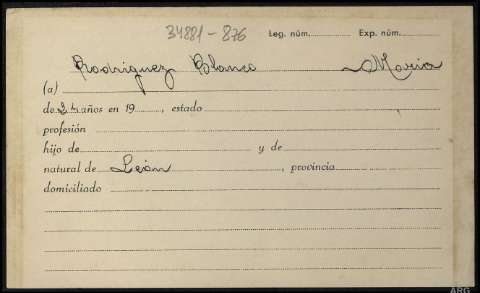 34881-876 Leg. núm. Exp. núm.
Rodriguez Blanco Maria
(a)
de años en 19 , estado
profesión
hijo de y de
natural de León , provincia
domiciliado
ARG